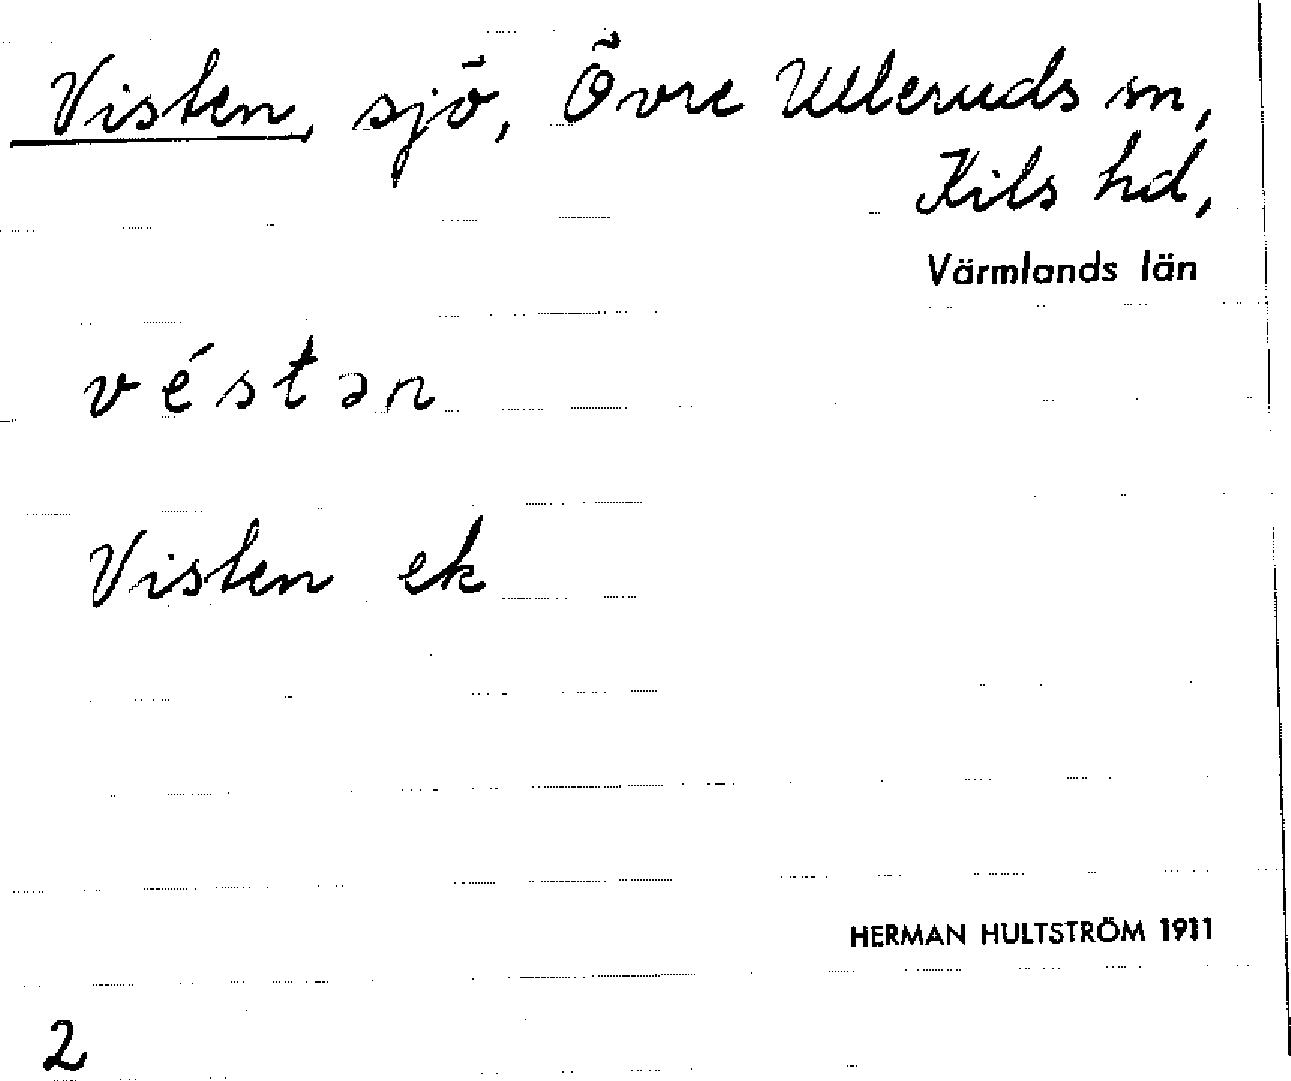 Visten, sjö, Övre Ulleruds sn,
Kils hd,
Värmlands län
véstən
Visten ek
HERMAN HULTSTRÖM 1911
2